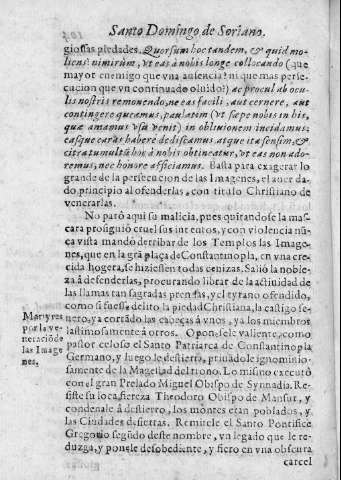 Santo Domingo de Soriano.
giossas piedades. Quorsum hoc tandem, & quid mo-
liens? nimirùm, vt eas à nobis longe collocando (que
mayor enemigo que vna ausencia? ni que mas perse-
cucion que vn continuado oluido?) ac procul ab ocu-
lis nostris remonendo, ne eas facili, aut cernere, aut
contingere queamus, paulatim (vt sæpe nobis in his,
quæ amamus vsu venit) in obliuionem incidamus;
easque caras habere dediscamus atque ita sensim, &
citra tumultũ hoc à nobis obtineatur, vt eas non ado-
remus, nec honore afficiamus. Basta para exagerar lo
grande de la persecucion de las Imagenes, el auer da-
do principio al ofenderlas, con titulo Christiano de
venerarlas.
No parò aqui su malicia, pues quitandose la mas-
cara prosiguiò cruel sus intentos, y con violencia nũ-
ca vista mandò derribar de los Templos las Image-
nes, que en la grã plaça de Constantinopla, en vna cre-
cida hogera, se hiziessen todas cenizas. Saliò la noble-
za à defenderlas, procurando librar de la actiuidad de
las llamas tan sagradas prendas, y el tyrano ofendido,
como si fuesse delito la piedad Christiana, la castigo se-
uero, y a cortãdo las cabeças à vnos, ya los miembros
lastimosamente à otros. Oponele valiente, como
pastor celoso el Santo Patriarca de Constantinopla
Germano, y luego le destierra, priuãdole ignominio-
samente de la Magestad del trono. Lo mismo executò
con el gran Prelado Miguel Obispo de Synnadia. Re-
siste su loca fiereza Theodoro Obispo de Mansur, y
condenale à destierro, los montes estan poblados, y
las Ciudades desiertas. Remitele el Santo Pontifice
Gregorio segũdo deste nombre, vn legado que le re-
duzga, y ponele desobediente, y fiero en vna obscura
carcel
Martyres
por la ve-
neraciõ de
las Image
nes.